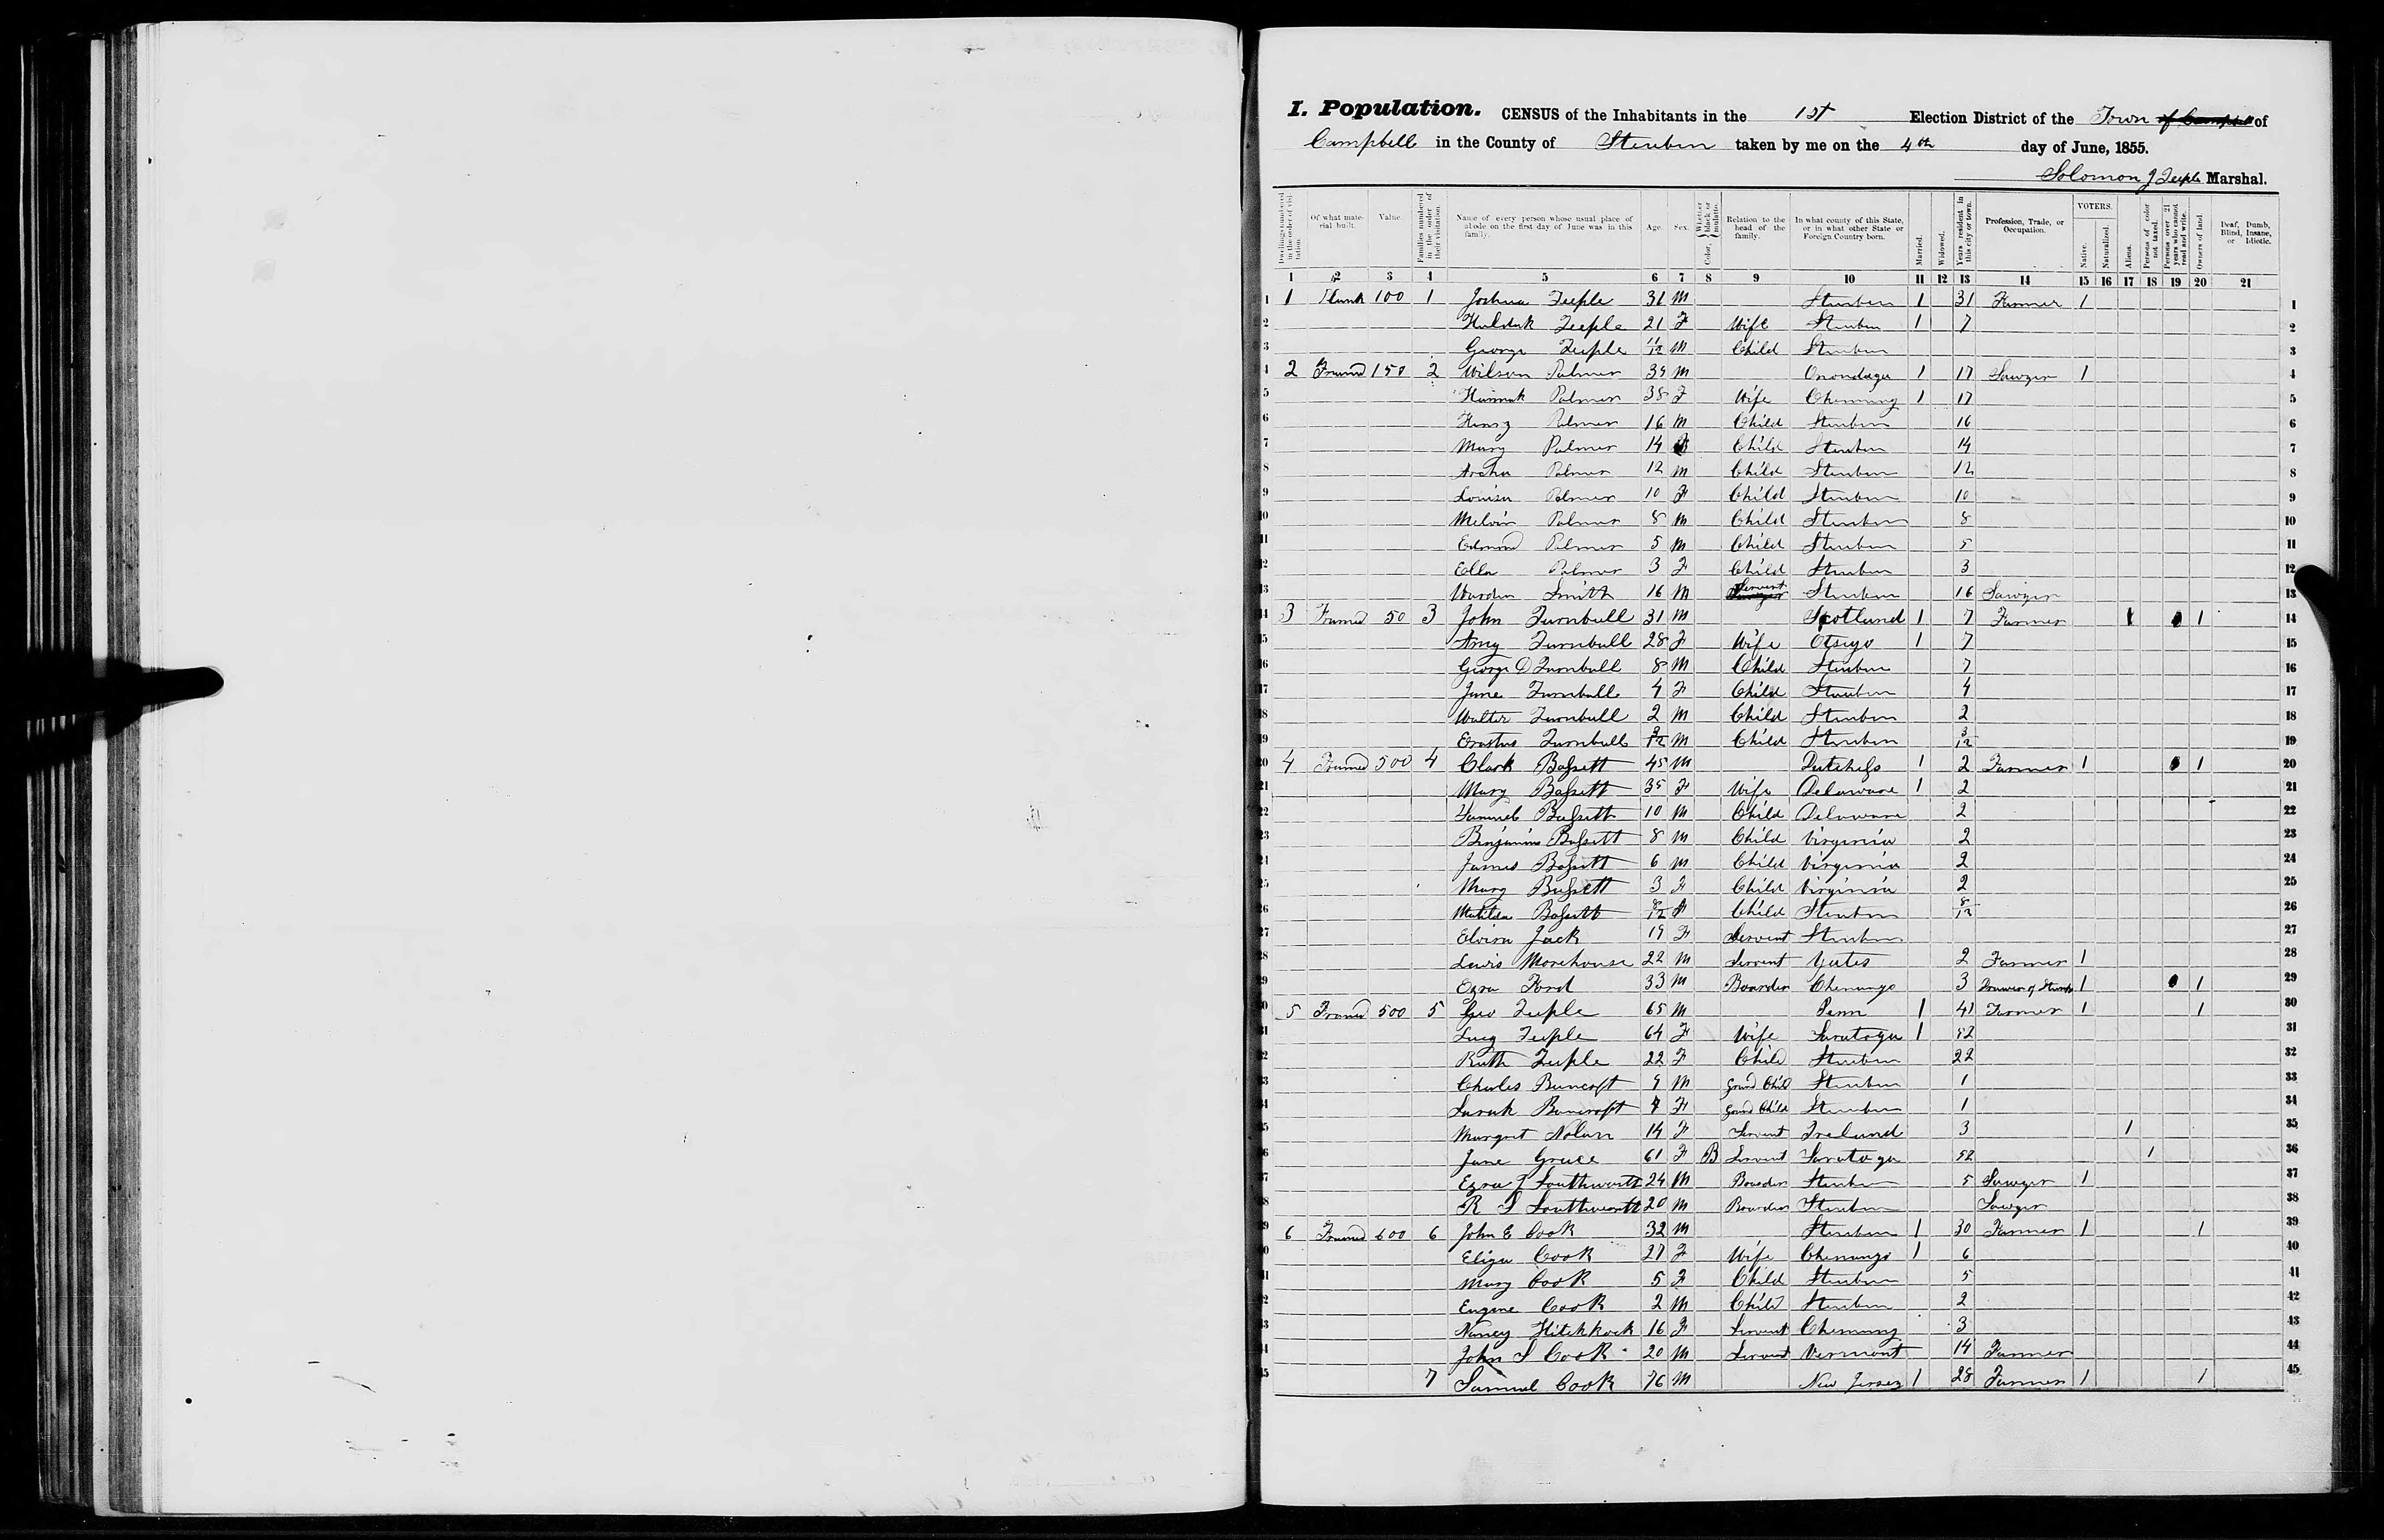 I. Population. CENSUS of the Inhabitants in the 1st Election District of the Town of Campbell of
Campbell in the County of Steuben taken by me on the 4th day of June, 1855.
Solomon J Teeple Marshal.
Dwellings numbered in the order of visitation. Of what material built. Value. Families numbered in the order of their visitation. Name of every person whose usual place of abode on the first day of June was in this family. Age. Sex. Color, Whether black or mulatto. Relation to the head of the family. In what county of this State, or in what other State or Foreign Country born. Married. Widowed. Years resident in this city or town. Profession, Trade, or Occupation. VOTERS. Native. Naturalized. Aliens. Persons of color not taxed. Persons over 21 years who cannot read and write. Owners of land. Deaf, Dumb, Blind, Insane, or Idiotic.
1 2 3 4 5 6 7 8 9 10 11 12 13 14 15 16 17 18 19 20 21
1 1 Plank 100 1 Joshua Teeple 31 M Steuben 1 31 Farmer 1 1
2 Huldah Teeple 21 F Wife Steuben 1 7 2
3 George Teeple 11/12 M Child Steuben 3
4 2 Framed 150 2 Wilson Palmer 39 M Onondaga 1 17 Sawyer 1 4
5 Hannah Palmer 38 F Wife Chemung 1 17 5
6 Henry Palmer 16 M Child Steuben 16 6
7 Mary Palmer 14 Child Steuben 14 7
8 Palmer 12 M Child Steuben 12 8
9 Louisa Palmer 10 F Child Steuben 10 9
10 Melvin Palmer 8 M Child Steuben 8 10
11 Edmond Palmer 5 M Child Steuben 5 11
12 Ella Palmer 3 F Child Steuben 3 12
13 Warden Smith 16 M Servent Steuben 16 Sawyer 13
14 3 Framed 50 3 John Turnbull 31 M Scotland 1 7 Farmer 1 1 14
15 Amy Turnbull 28 F Wife Otsego 1 7 15
16 George D Turnbull 8 M Child Steuben 7 16
17 Jane Turnbull 4 F Child Steuben 4 17
18 Walter Turnbull 2 M Child Steuben 2 18
19 Erastus Turnbull 3/12 M Child Steuben 3/12 19
20 4 Framed 500 4 Clark Bassett 45 M Dutchess 1 2 Farmer 1 1 20
21 Mary Bassett 35 F Wife Delaware 1 2 21
22 Samuel Bassett 10 M Child Delaware 2 22
23 Benjamin Bassett 8 M Child Virginia 2 23
24 James Bassett 6 M Child Virginia 2 24
25 Mary Bassett 3 F Child Virginia 2 25
26 Matilda Bassett 8/12 F Child Steuben 8/12 26
27 Elvira Jack 19 F Servent Steuben 27
28 Lewis Morehouse 22 M Servent Yates 2 Farmer 1 28
29 Ezra Ford 33 M Boarder Chenango 3 1 1 29
30 5 Framed 500 5 Geo Teeple 65 M Penn 1 41 Farmer 1 1 30
31 Lucy Teeple 64 F Wife Saratoga 1 52 31
32 Ruth Teeple 22 F Child Steuben 22 32
33 Charles Bancroft 9 M Grand Child Steuben 1 33
34 Sarah Bancroft 7 F Grand Child Steuben 1 34
35 Margret Nolan 14 F Servent Ireland 3 1 35
36 Jane Grace 61 F B Servent Saratoga 52 1 36
37 Ezra J Southworth 24 M Boarder Steuben 5 Sawyer 1 37
38 R S Southworth 20 M Boarder Steuben Sawyer 38
39 6 Framed 600 6 John E Cook 32 M Steuben 1 30 Farmer 1 1 39
40 Eliza Cook 27 F Wife Chenango 1 6 40
41 Mary Cook 5 F Child Steuben 5 41
42 Eugene Cook 2 M Child Steuben 2 42
43 Nancy Hitchkock 16 F Servent Chemung 3 43
44 John S Cook 20 M Servent Vermont 14 Farmer 44
45 7 Samuel Cook 76 M New Jersey 1 28 Farmer 1 1 45